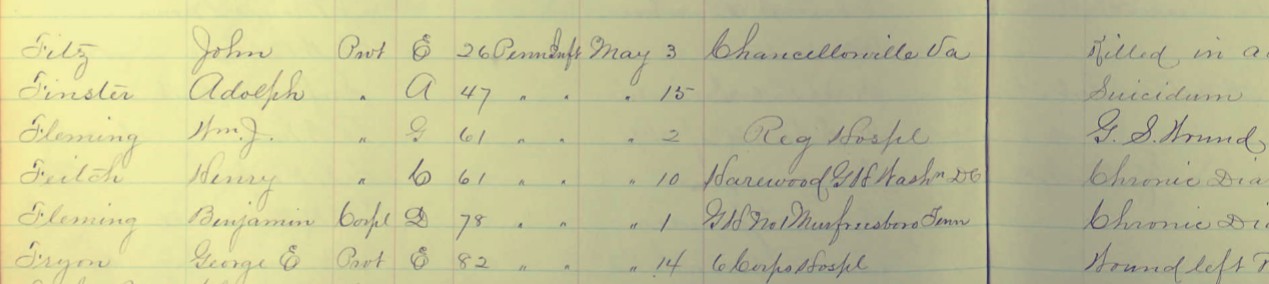 Fitz John Pvt E 26 Penn Inft May 3 Chancellorville Va Killed in a
Finster Adolph " A 47 " " " 15 Suicidum
Fleming Wm. J. " G 61 " " " 2 Reg Hospl G. S. Wound
Feitch Henry " C 61 " " " 10 Harewood G H Washn DC Chronic Dia
Fleming Benjamin Corpl D 78 " " " 1 G H No 1 Murfreesboro Tenn Chronic Di
Fryon George E Pvt E 82 " " " 14 6 Corps Hospl Wound left